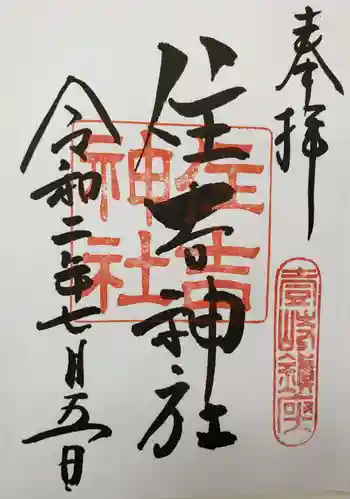 奉拝
住吉神社
住吉
神社
令和二年七月五日